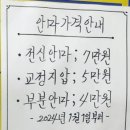 안마가격안내
· 전신안마; 7만원
· 교정지압; 5만원
· 부분안마; 4만원
- 2024년 1월 1일부터 -